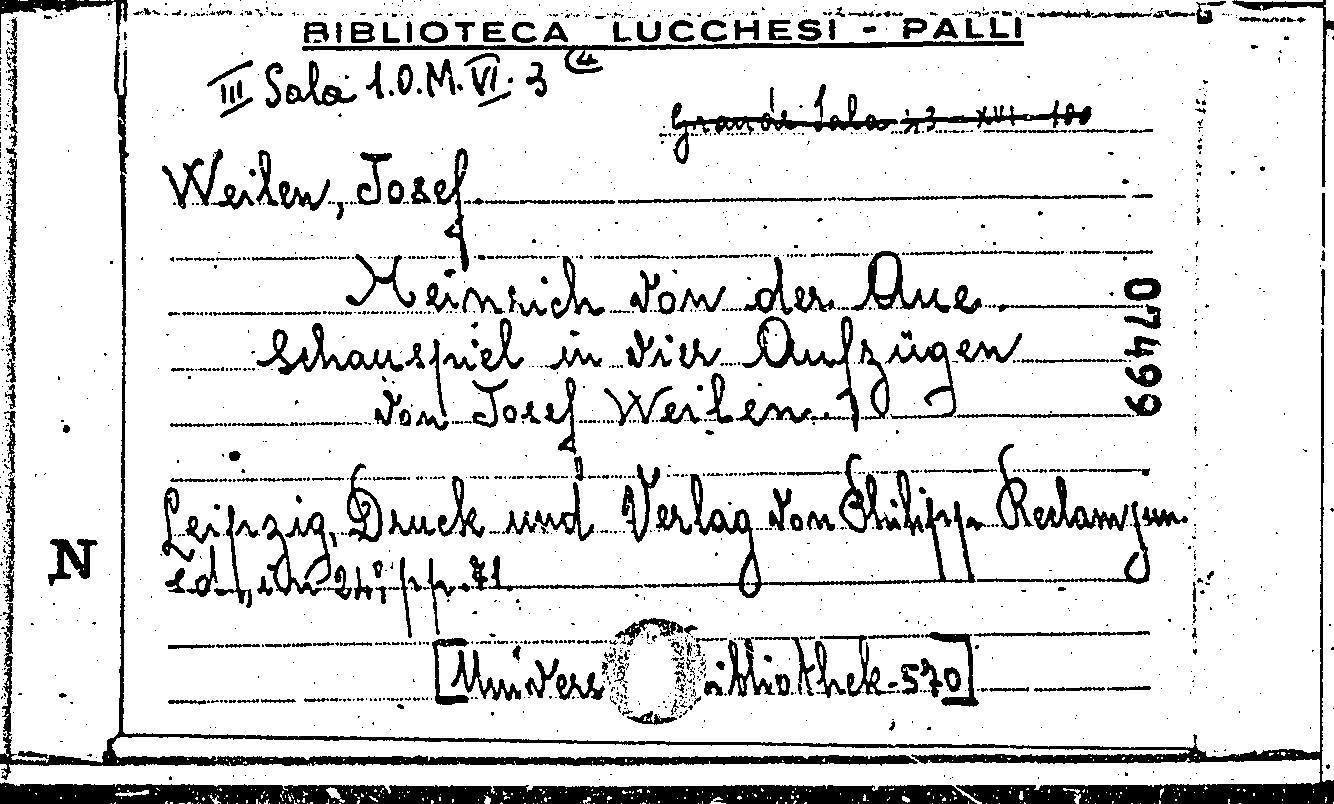 BIBLIOTECA LUCCHESI - PALLI
III Sala 1.O.M.VI.3 (4
Grande Sala 23-XVI-100
Weilen, Josef
Heinrich von der Aue.
Schauspiel in vier Aufzügen
von Josef Weilen.
07499
Leipzig, Druck und Verlag von Philipp Reclam jun.
N
s.d., in 24°, pp. 71.
[Univers ibliothek-570]